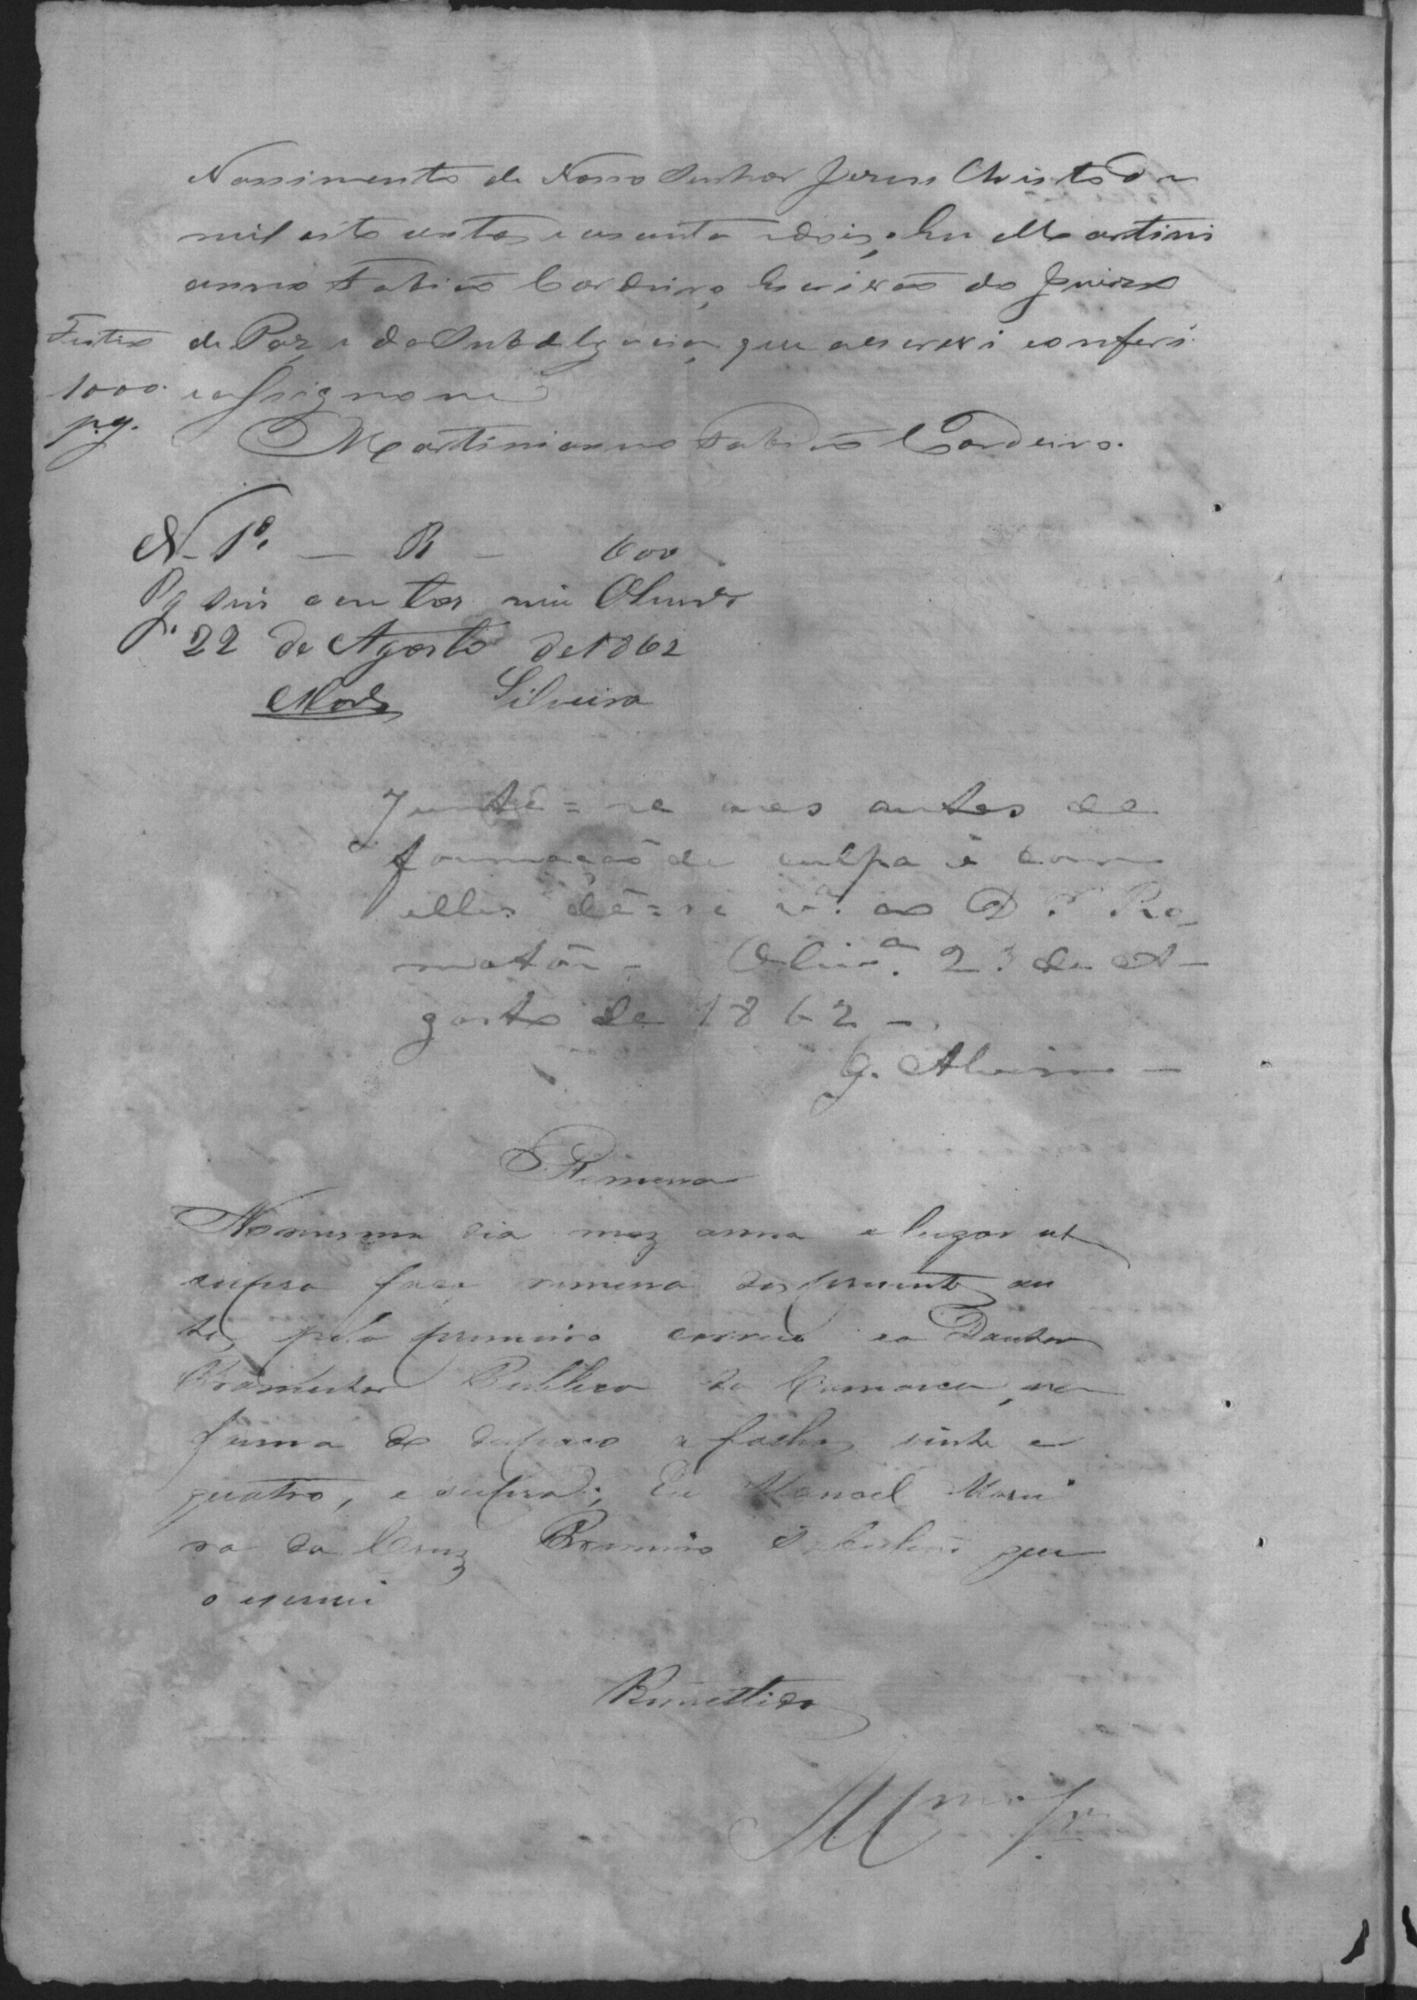 Nassimento de Nosso Senhor Jezus Christo de
mil oito centos e cecenta e dois, Eu Martini
anno Fabião Cordeiro, Escrivão do Juizo
de Paz e da Subdelgacia que a escrevi conferi
e assignome
1000
pg.
Martinianno Fabião Cordeiro.
N. 1º. — R — 600
Pg seis centos reis
22 de Agosto de 1862
Silveira
Junte=se aos autos de
formação de culpa e com
elles dê=se vª. ao D.r Pro-
motôr — Olivª. 23 de A-
gosto de 1862 —
G. Alvim —
Remessa
No mesmo dia mez anno e lugar ut
supra faço remessa dos presentes au
tos pelo primeiro correio ao Doutor
Promotor Publico da Comarca, na
forma do despaxo a folhas vinte e
quatro, e supra; Eu Manoel Morei
ra da Cruz Primeiro Tabelião que
o escrevi
Remettido